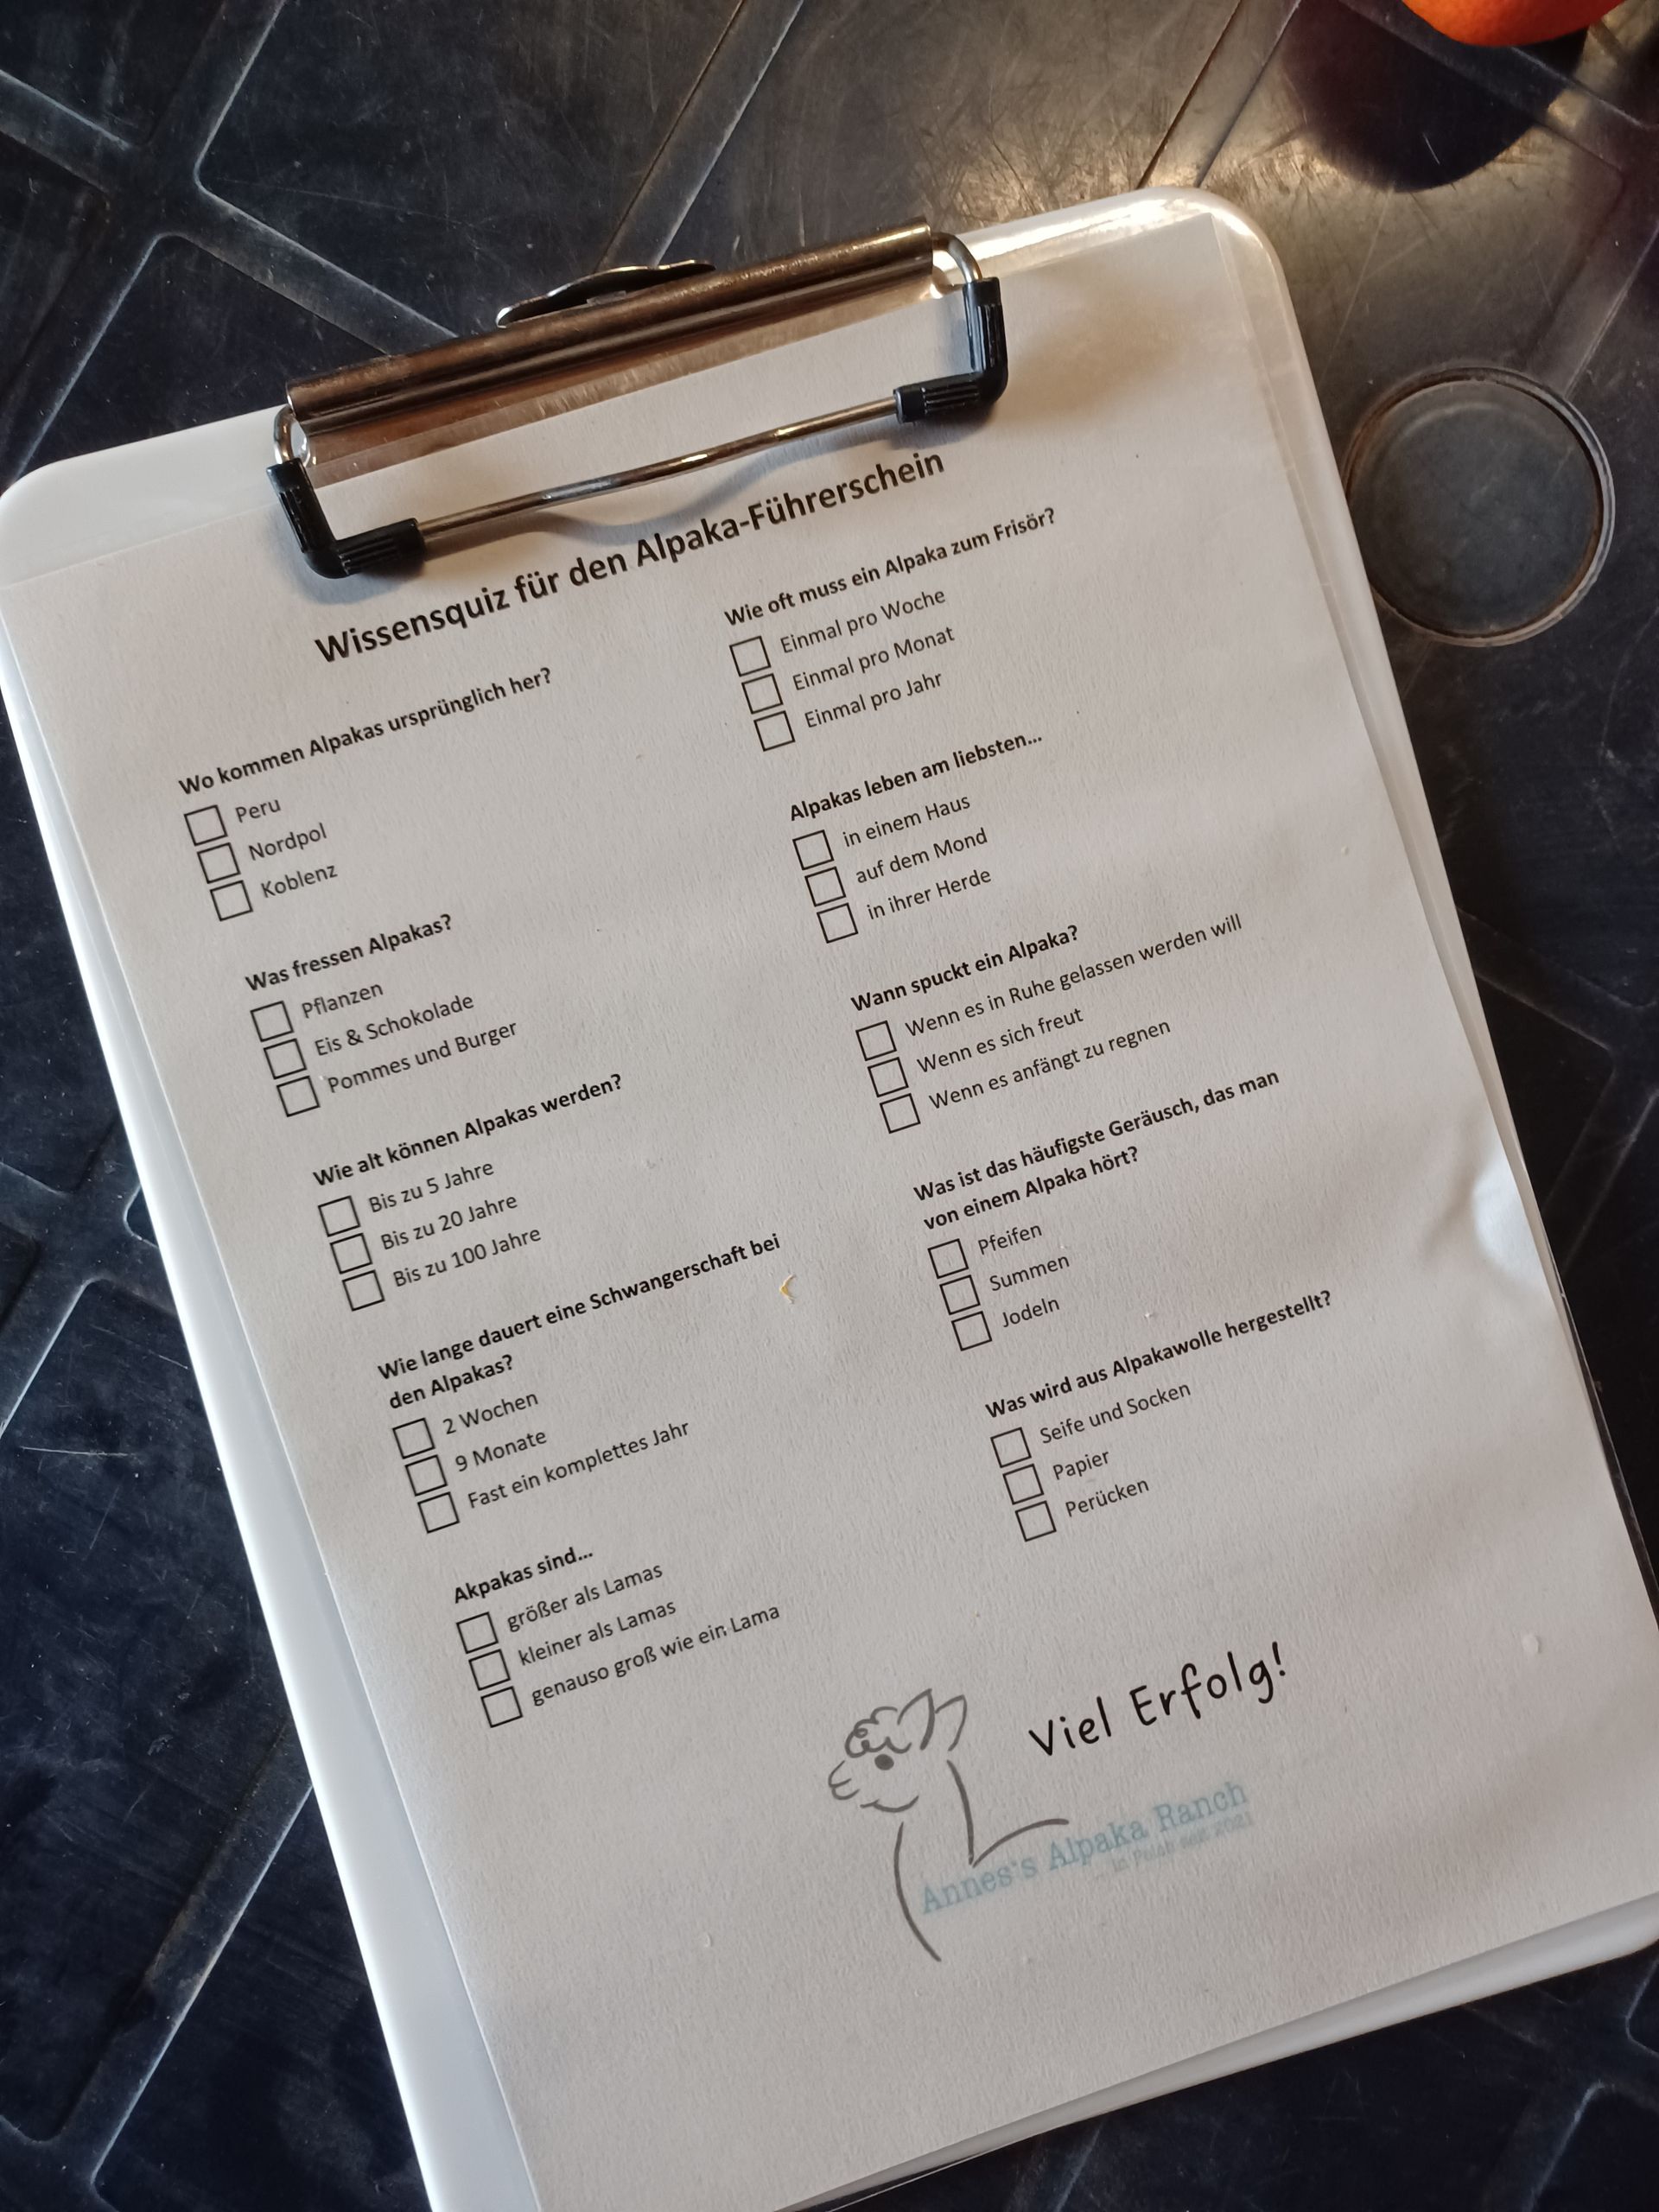 Wissensquiz für den Alpaka-Führerschein
Wo kommen Alpakas ursprünglich her?
Peru
Nordpol
Koblenz
Was fressen Alpakas?
Pflanzen
Eis & Schokolade
Pommes und Burger
Wie alt können Alpakas werden?
Bis zu 5 Jahre
Bis zu 20 Jahre
Bis zu 100 Jahre
Wie lange dauert eine Schwangerschaft bei
den Alpakas?
2 Wochen
9 Monate
Fast ein komplettes Jahr
Akpakas sind...
größer als Lamas
kleiner als Lamas
genauso groß wie ein Lama
Wie oft muss ein Alpaka zum Frisör?
Einmal pro Woche
Einmal pro Monat
Einmal pro Jahr
Alpakas leben am liebsten...
in einem Haus
auf dem Mond
in ihrer Herde
Wann spuckt ein Alpaka?
Wenn es in Ruhe gelassen werden will
Wenn es sich freut
Wenn es anfängt zu regnen
Was ist das häufigste Geräusch, das man
von einem Alpaka hört?
Pfeifen
Summen
Jodeln
Was wird aus Alpakawolle hergestellt?
Seife und Socken
Papier
Perücken
Viel Erfolg!
Annes's Alpaka Ranch
in seit 2021